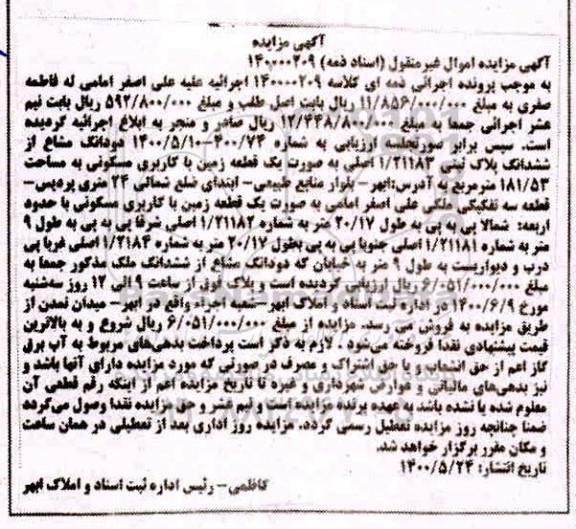 آگهی مزایده
آگهی مزایده اموال غیرمنقول (اسناد ذمه) ۱۴۰۰۰۰۲۰۹
به موجب پرونده اجرائی ذمه ای کلاسه ۱۴۰۰۰۰۲۰۹ اجرائیه علیه علی اصغر امامی له فاطمه
صفری به مبلغ ۱۱/۸۵۶/۰۰۰/۰۰۰ ریال بابت اصل طلب و مبلغ ۵۹۲/۸۰۰/۰۰۰ ریال بابت نیم
عشر اجرائی جمعا به مبلغ ۱۲/۴۴۸/۸۰۰/۰۰۰ ریال صادر و منجر به ابلاغ اجرائیه گردیده
است. سپس برابر صورتجلسه ارزیابی به شماره ۴۰۰/۷۴-۱۴۰۰/۵/۱۰ دودانگ مشاع از
ششدانگ پلاک ثبتی ۱/۲۱۱۸۳ اصلی به صورت یک قطعه زمین با کاربری مسکونی به مساحت
۱۸۱/۵۳ مترمربع به آدرس:ابهر- بلوار منابع طبیعی- ابتدای ضلع شمالی ۲۴ متری پردیس-
قطعه سه تفکیکی ملکی علی اصغر امامی به صورت یک قطعه زمین با کاربری مسکونی با حدود
اربعه: شمالا پی به پی به طول ۲۰/۱۷ متر به شماره ۱/۲۱۱۸۲ اصلی شرقا پی به پی به طول ۹
متر به شماره ۱/۲۱۱۸۱ اصلی جنوبا پی به پی بطول ۲۰/۱۷ متر به شماره ۱/۲۱۸۴ اصلی غربا پی
درب و دیواریست به طول ۹ متر به خیابان که دودانگ مشاع از ششدانگ ملک مذکور جمعا به
مبلغ ۶/۰۵۱/۰۰۰/۰۰۰ ریال ارزیابی گردیده است و پلاک فوق از ساعت ۹ الی ۱۲ روز سه‌شنبه
مورخ ۱۴۰۰/۶/۹ در اداره ثبت اسناد و املاک ابهر-شعبه اجراء واقع در ابهر- میدان تمدن از
طریق مزایده به فروش می رسد. مزایده از مبلغ ۶/۰۵۱/۰۰۰/۰۰۰ ریال شروع و به بالاترین
قیمت پیشنهادی نقدا فروخته می‌شود . لازم به ذکر است پرداخت بدهی‌های مربوط به آب برق
گاز اعم از حق انشعاب و یا حق اشتراک و مصرف در صورتی که مورد مزایده دارای آنها باشد و
نیز بدهی‌های مالیاتی و عوارض شهرداری و غیره تا تاریخ مزایده اعم از اینکه رقم قطعی آن
معلوم شده یا نشده باشد به عهده برنده مزایده است و نیم عشر و حق مزایده نقدا وصول می‌گردد
ضمنا چنانچه روز مزایده تعطیل رسمی گردد، مزایده روز اداری بعد از تعطیلی در همان ساعت
و مکان مقرر برگزار خواهد شد.
تاریخ انتشار: ۱۴۰۰/۵/۲۴
کاظمی- رئیس اداره ثبت اسناد و املاک ابهر